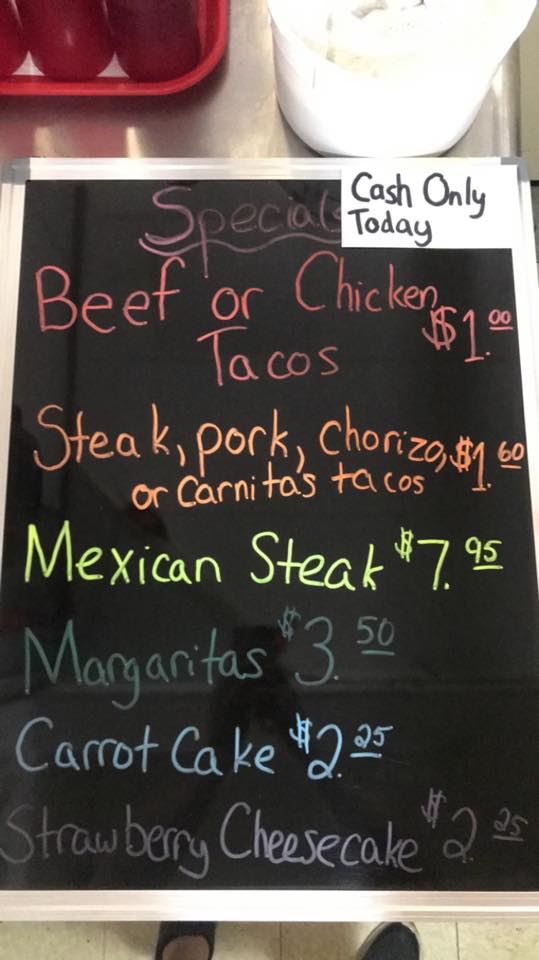 Cash Only
Today
Specials
Beef or Chicken $1.00
Tacos
Steak, pork, chorizo, $1.60
or Carnitas tacos
Mexican Steak $7.95
Margaritas $3.50
Carrot Cake $2.25
Strawberry Cheesecake $2.25